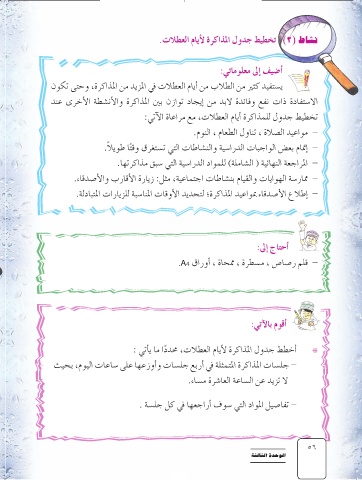 نشاط (٢) تخطيط جدول المذاكرة لأيام العطلات.
أضيف إلى معلوماتي:
يستفيد كثير من الطلاب من أيام العطلات في المزيد من المذاكرة، وحتى تكون
الاستفادة ذات نفع وفائدة لابد من إيجاد توازن بين المذاكرة والأنشطة الأخرى عند
تخطيط جدول للمذاكرة أيام العطلات، مع مراعاة الآتي:
– مواعيد الصلاة ، تناول الطعام ، النوم.
– إتمام بعض الواجبات الدراسية والنشاطات التي تستغرق وقتًا طويلاً.
– المراجعة النهائية ( الشاملة) للمواد الدراسية التي سبق مذاكرتها.
– ممارسة الهوايات والقيام بنشاطات اجتماعية، مثل: زيارة الأقارب والأصدقاء.
– إطلاع الأصدقاء بمواعيد المذاكرة؛ لتحديد الأوقات المناسبة للزيارات المتبادلة.
أحتاج إلى:
– قلم رصاص ، مسطرة ، ممحاة ، أوراق A4.
أقوم بالآتي:
أخطط جدول المذاكرة لأيام العطلات، محددًا ما يأتي :
– جلسات المذاكرة المتمثلة في أربع جلسات وأوزعها على ساعات اليوم، بحيث
لا تزيد عن الساعة العاشرة مساء.
– تفاصيل المواد التي سوف أراجعها في كل جلسة .
٥٦
الوحدة الثالثة